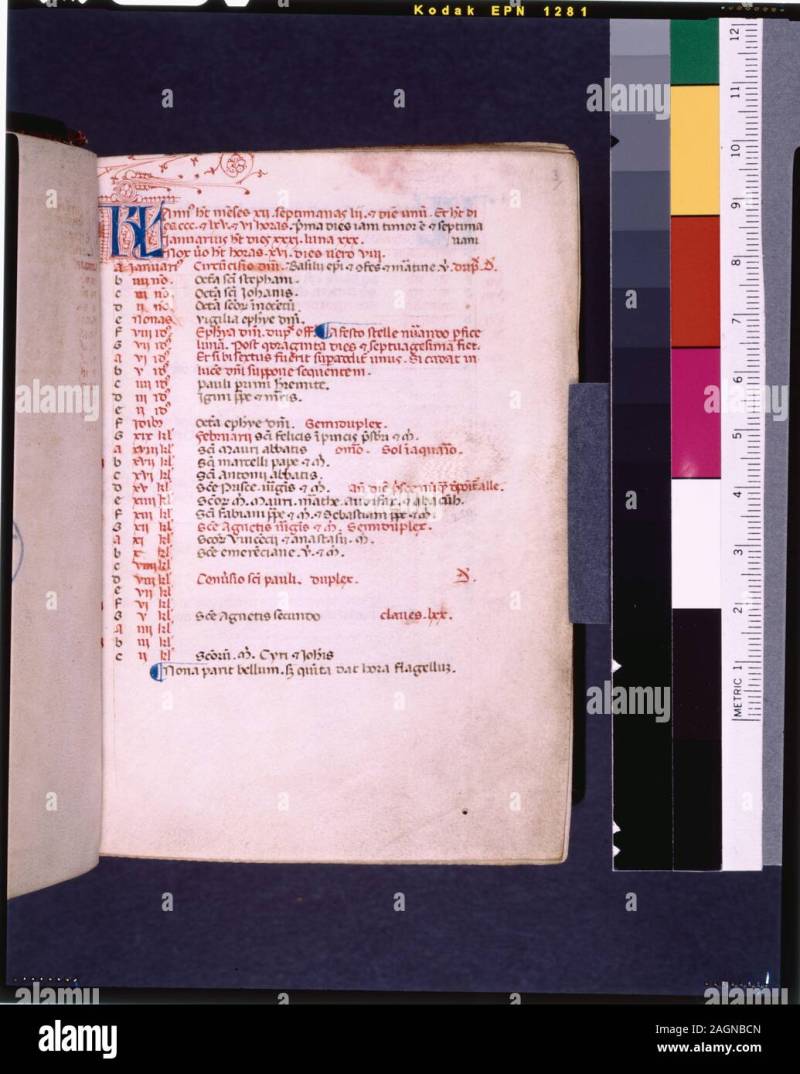 Kodak EPN 1281
3
KL Ann' ht mēses xii. septimanas lii. ⁊ diē unū. Et ht di
es ccc. ⁊ lxv. ⁊ vi horas. p̄ma dies iam timor ē ⁊ septima
Januarius ht dies xxxi. luna xxx. uani
Nox ūo ht horas. xvi. dies uero viii.
a Januari' Circūcisio dn̄i. Basilii ep̄i ⁊
b iiii no. Octā sc̄i stephani.
c iii no. Octā sc̄i Johanis.
d ii no. Octā scoꝝ īnocētū
e Nonas Vigilia ephye dn̄i.
f viii id' Ephya dn̄i. dup' off A festo stelle nūando
G vii id' lunā. Post q̄draginta dies ⁊ septuagesima fiet.
a vi id' Et si bisextus fuerit
b v id' luce dn̄i suppone sequentem.
c iiii id' Pauli primi heremite.
d iii id' Igini pp̄e ⁊ m̄ris.
e ii id'
f Idib' Octā ephye dn̄i. Semiduplex.
G xix kl' Februarii Sc̄i felicis ī pincis
a xviii kl' Sc̄i Mauri abbatis Sol ī aquāio.
b xvii kl' Sc̄i marcelli pape ⁊ m̄.
c xvi kl' Sc̄i Antonii abbatis.
d xv kl' Sc̄e Prisce uīgis ⁊ m̄.
e xiiii kl' Scoꝝ m̄. Marii. marthe. Audifax. ⁊ abacūh.
f xiii kl' Sc̄i Fabiani pp̄e ⁊ m̄. ⁊ Sebastiani
G xii kl' Sc̄e Agnetis uīgis ⁊ m̄. Semiduplex.
a xi kl' Scoꝝ Vincecii ⁊ anastasii. m̄.
b x kl' Sc̄e emerēciane. v. ⁊ m̄.
c viiii kl'
d viii kl' Conūsio sc̄i pauli. duplex.
e vii kl'
f vi kl'
G v kl' Sc̄e Agnetis secundo claues. lxx.
a iiii kl'
b iii kl'
c ii kl' Scōrū. m̄. Cyri ⁊ Joh̄is
Nona parit bellum. sꝫ quīta dat hora flagellūꝫ.
12
11
10
9
8
7
6
5
4
3
2
METRIC 1
alamy
a
alamy
2AGNBCN
www.alamy.com